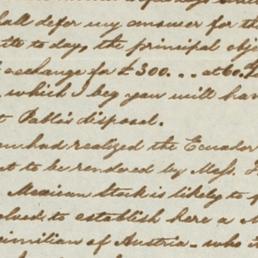 hall defer my answer for th
to days, the principal obje
exchange for £300... at 60
which I beg you will han
Pablis disposal.
had realized the Ecuador
t to be rendered by Mess.
Mexican Stock is likely to
olved to establish here a
imilian of Austria - who i